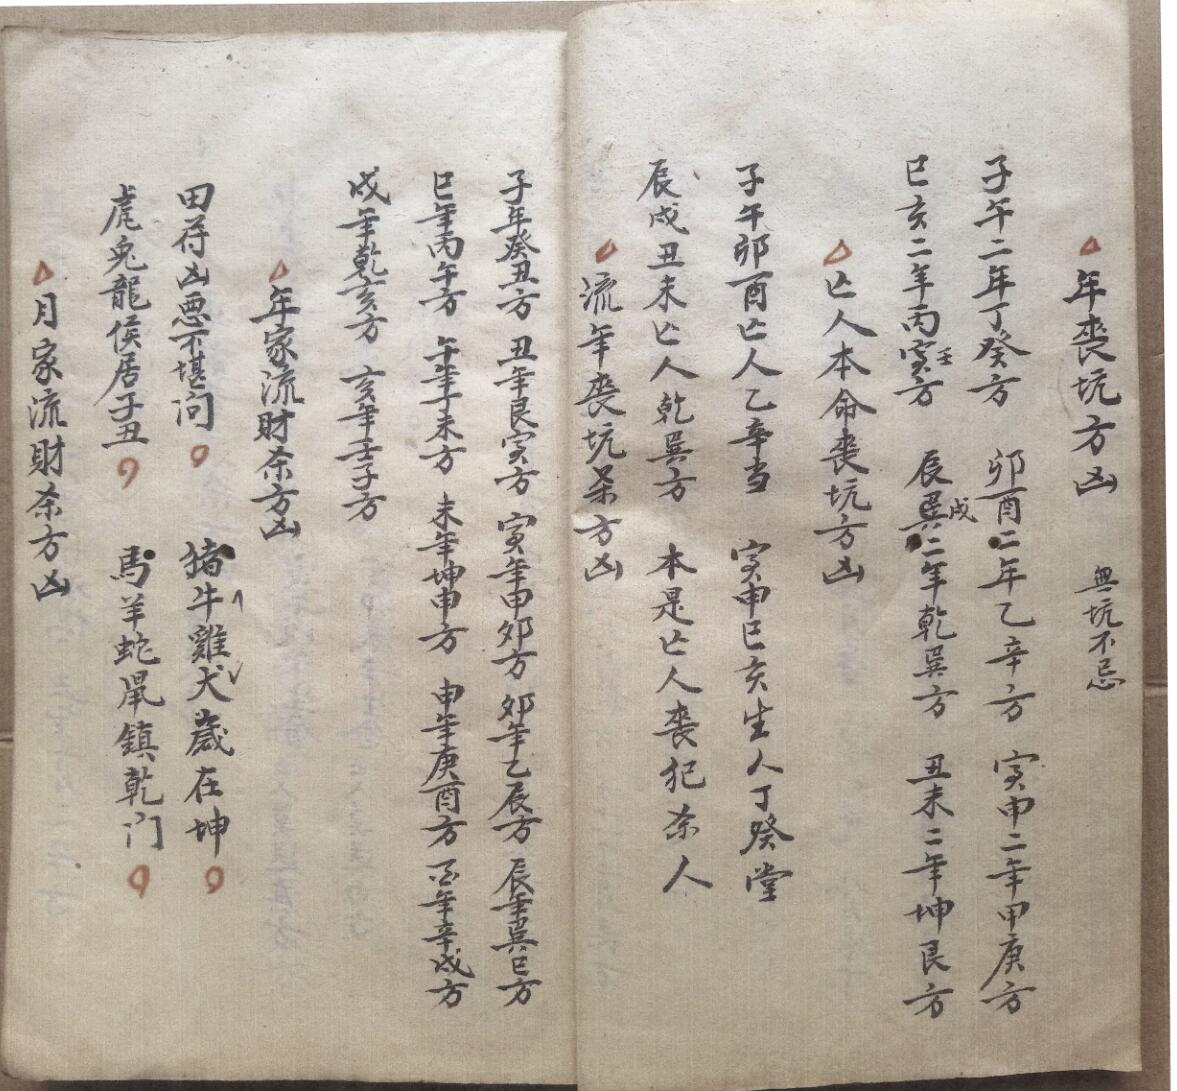 年喪坑方凶 無坑不忌
子午二年丁癸方 卯酉二年乙辛方 寅申二年甲庚方
巳亥二年丙壬方 辰戌二年乾巽方 丑未二年坤艮方
亾人本命喪坑方凶
子午卯酉亾人乙辛当 寅申巳亥生人丁癸堂
辰戌丑未亾人乾巽方 本是亾人喪犯杀人
流年喪坑杀方凶
子年癸丑方 丑年艮寅方 寅年甲卯方 卯年乙辰方 辰年巽巳方
巳年丙午方 午年丁未方 未年坤申方 申年庚酉方 酉年辛戌方
戌年乾亥方 亥年壬子方
年家流財杀方凶
田符凶惡不堪问 猪牛雞犬歲在坤
虎兔龍侯居子丑 馬羊蛇鼠鎮乾门
月家流財杀方凶